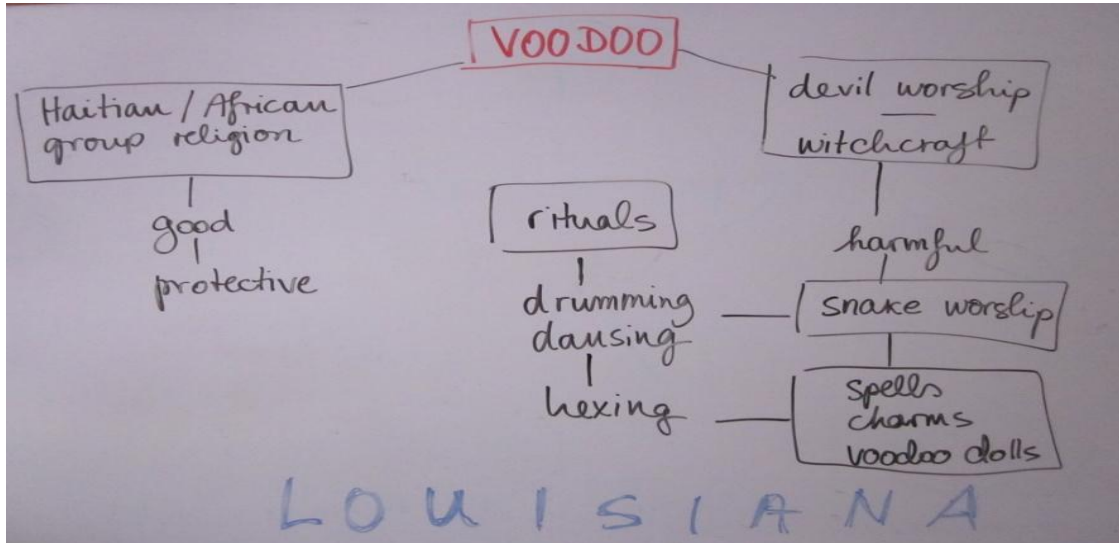 VOODOO
Haitian / African
group religion
good
protective
rituals
drumming
dansing
hexing
devil worship
witchcraft
harmful
snake worship
spells
charms
voodoo dolls
LOUISIANA